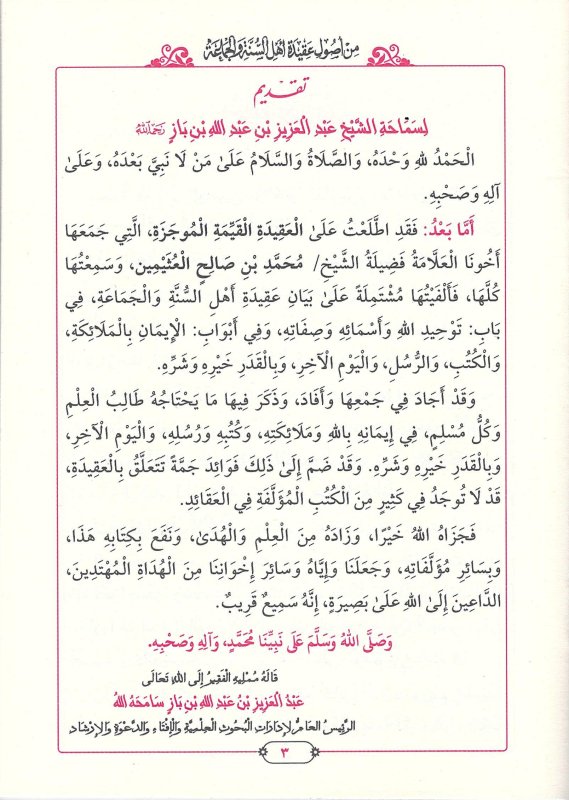 مِنْ أُصُولِ عَقِيدَةِ أَهْلِ السُّنَّةِ وَالْجَمَاعَةِ
تقديم
لِسَمَاحَةِ الشَّيْخِ عَبْدِ الْعَزِيزِ بْنِ عَبْدِ اللهِ بْنِ بَازٍ رَحِمَهُ اللهُ
الْحَمْدُ لِلهِ وَحْدَهُ، وَالصَّلَاةُ وَالسَّلَامُ عَلَىٰ مَنْ لَا نَبِيَّ بَعْدَهُ، وَعَلَىٰ
آلِهِ وَصَحْبِهِ.
أَمَّا بَعْدُ: فَقَدِ اطَّلَعْتُ عَلَىٰ الْعَقِيدَةِ الْقَيِّمَةِ الْمُوجَزَةِ، الَّتِي جَمَعَهَا
أَخُونَا الْعَلَّامَةُ فَضِيلَةُ الشَّيْخِ/ مُحَمَّدِ بْنِ صَالِحٍ الْعُثَيْمِين، وَسَمِعْتُهَا
كُلَّهَا، فَأَلْفَيْتُهَا مُشْتَمِلَةً عَلَىٰ بَيَانِ عَقِيدَةِ أَهْلِ السُّنَّةِ وَالْجَمَاعَةِ، فِي
بَابِ: تَوْحِيدِ اللهِ وَأَسْمَائِهِ وَصِفَاتِهِ، وَفِي أَبْوَابِ: الْإِيمَانِ بِالْمَلَائِكَةِ،
وَالْكُتُبِ، وَالرُّسُلِ، وَالْيَوْمِ الْآخِرِ، وَبِالْقَدَرِ خَيْرِهِ وَشَرِّهِ.
وَقَدْ أَجَادَ فِي جَمْعِهَا وَأَفَادَ، وَذَكَرَ فِيهَا مَا يَحْتَاجُهُ طَالِبُ الْعِلْمِ
وَكُلُّ مُسْلِمٍ، فِي إِيمَانِهِ بِاللهِ وَمَلَائِكَتِهِ، وَكُتُبِهِ وَرُسُلِهِ، وَالْيَوْمِ الْآخِرِ،
وَبِالْقَدَرِ خَيْرِهِ وَشَرِّهِ. وَقَدْ ضَمَّ إِلَىٰ ذَلِكَ فَوَائِدَ جَمَّةً تَتَعَلَّقُ بِالْعَقِيدَةِ،
قَدْ لَا تُوجَدُ فِي كَثِيرٍ مِنَ الْكُتُبِ الْمُؤَلَّفَةِ فِي الْعَقَائِدِ.
فَجَزَاهُ اللهُ خَيْرًا، وَزَادَهُ مِنَ الْعِلْمِ وَالْهُدَىٰ، وَنَفَعَ بِكِتَابِهِ هَذَا،
وَبِسَائِرِ مُؤَلَّفَاتِهِ، وَجَعَلَنَا وَإِيَّاهُ وَسَائِرَ إِخْوَانِنَا مِنَ الْهُدَاةِ الْمُهْتَدِينَ،
الدَّاعِينَ إِلَىٰ اللهِ عَلَىٰ بَصِيرَةٍ، إِنَّهُ سَمِيعٌ قَرِيبٌ.
وَصَلَّى اللهُ وَسَلَّمَ عَلَى نَبِيِّنَا مُحَمَّدٍ، وَآلِهِ وَصَحْبِهِ.
قَالَهُ مُمْلِيهِ الْفَقِيرُ إِلَى اللهِ تَعَالَى
عَبْدُ الْعَزِيزِ بْنُ عَبْدِ اللهِ بْنِ بَازٍ سَامَحَهُ اللهُ
الرَّئِيسُ الْعَامُّ لِإِدَارَاتِ الْبُحُوثِ الْعِلْمِيَّةِ وَالْإِفْتَاءِ وَالدَّعْوَةِ وَالْإِرْشَادِ
٣